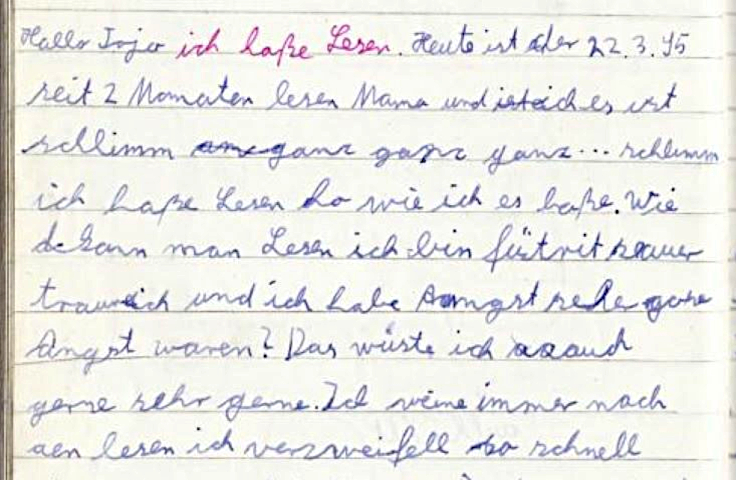 Hallo Jojo ich haße Lesen. Heute ist der 22.3.95
seit 2 Momaten lesen Mama und ich es ist
schlimm ganz ganz ganz... schlimm
ich haße Lesen so wie ich es haße. Wie
kann man Lesen ich bin
traurich und ich habe Angst
Angst waren? Das wüste ich auch
gerne sehr gerne. Ich weine immer nach
den lesen ich verzweifell so schnell